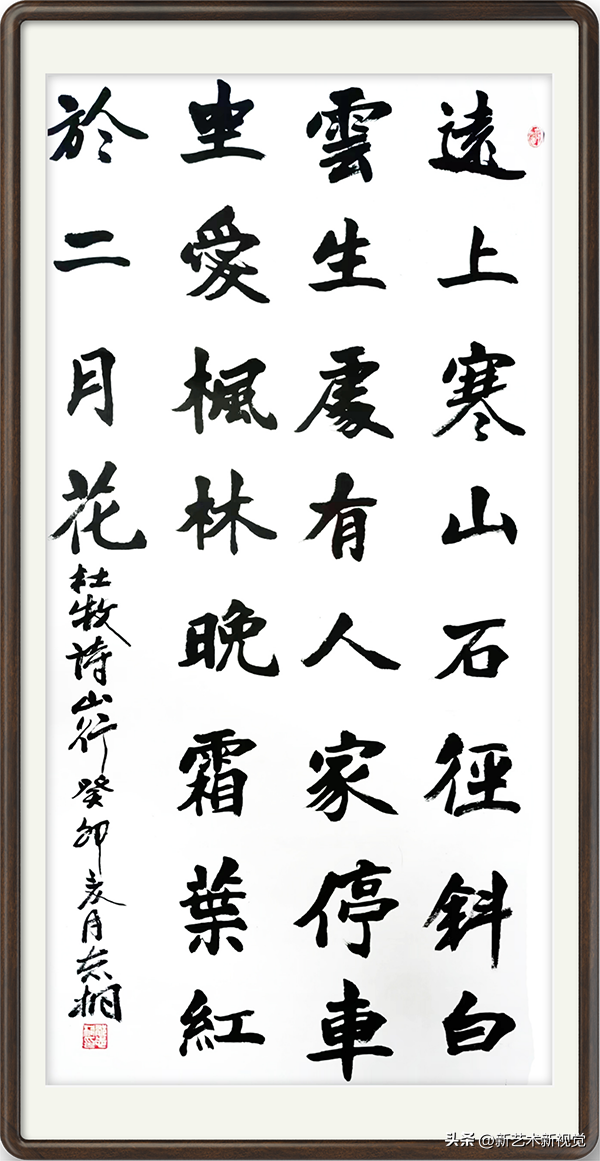 遠上寒山石徑斜白
雲生處有人家停車
坐愛楓林晚霜葉紅
於二月花
杜牧詩山行癸卯月
头条 @新艺术新视觉